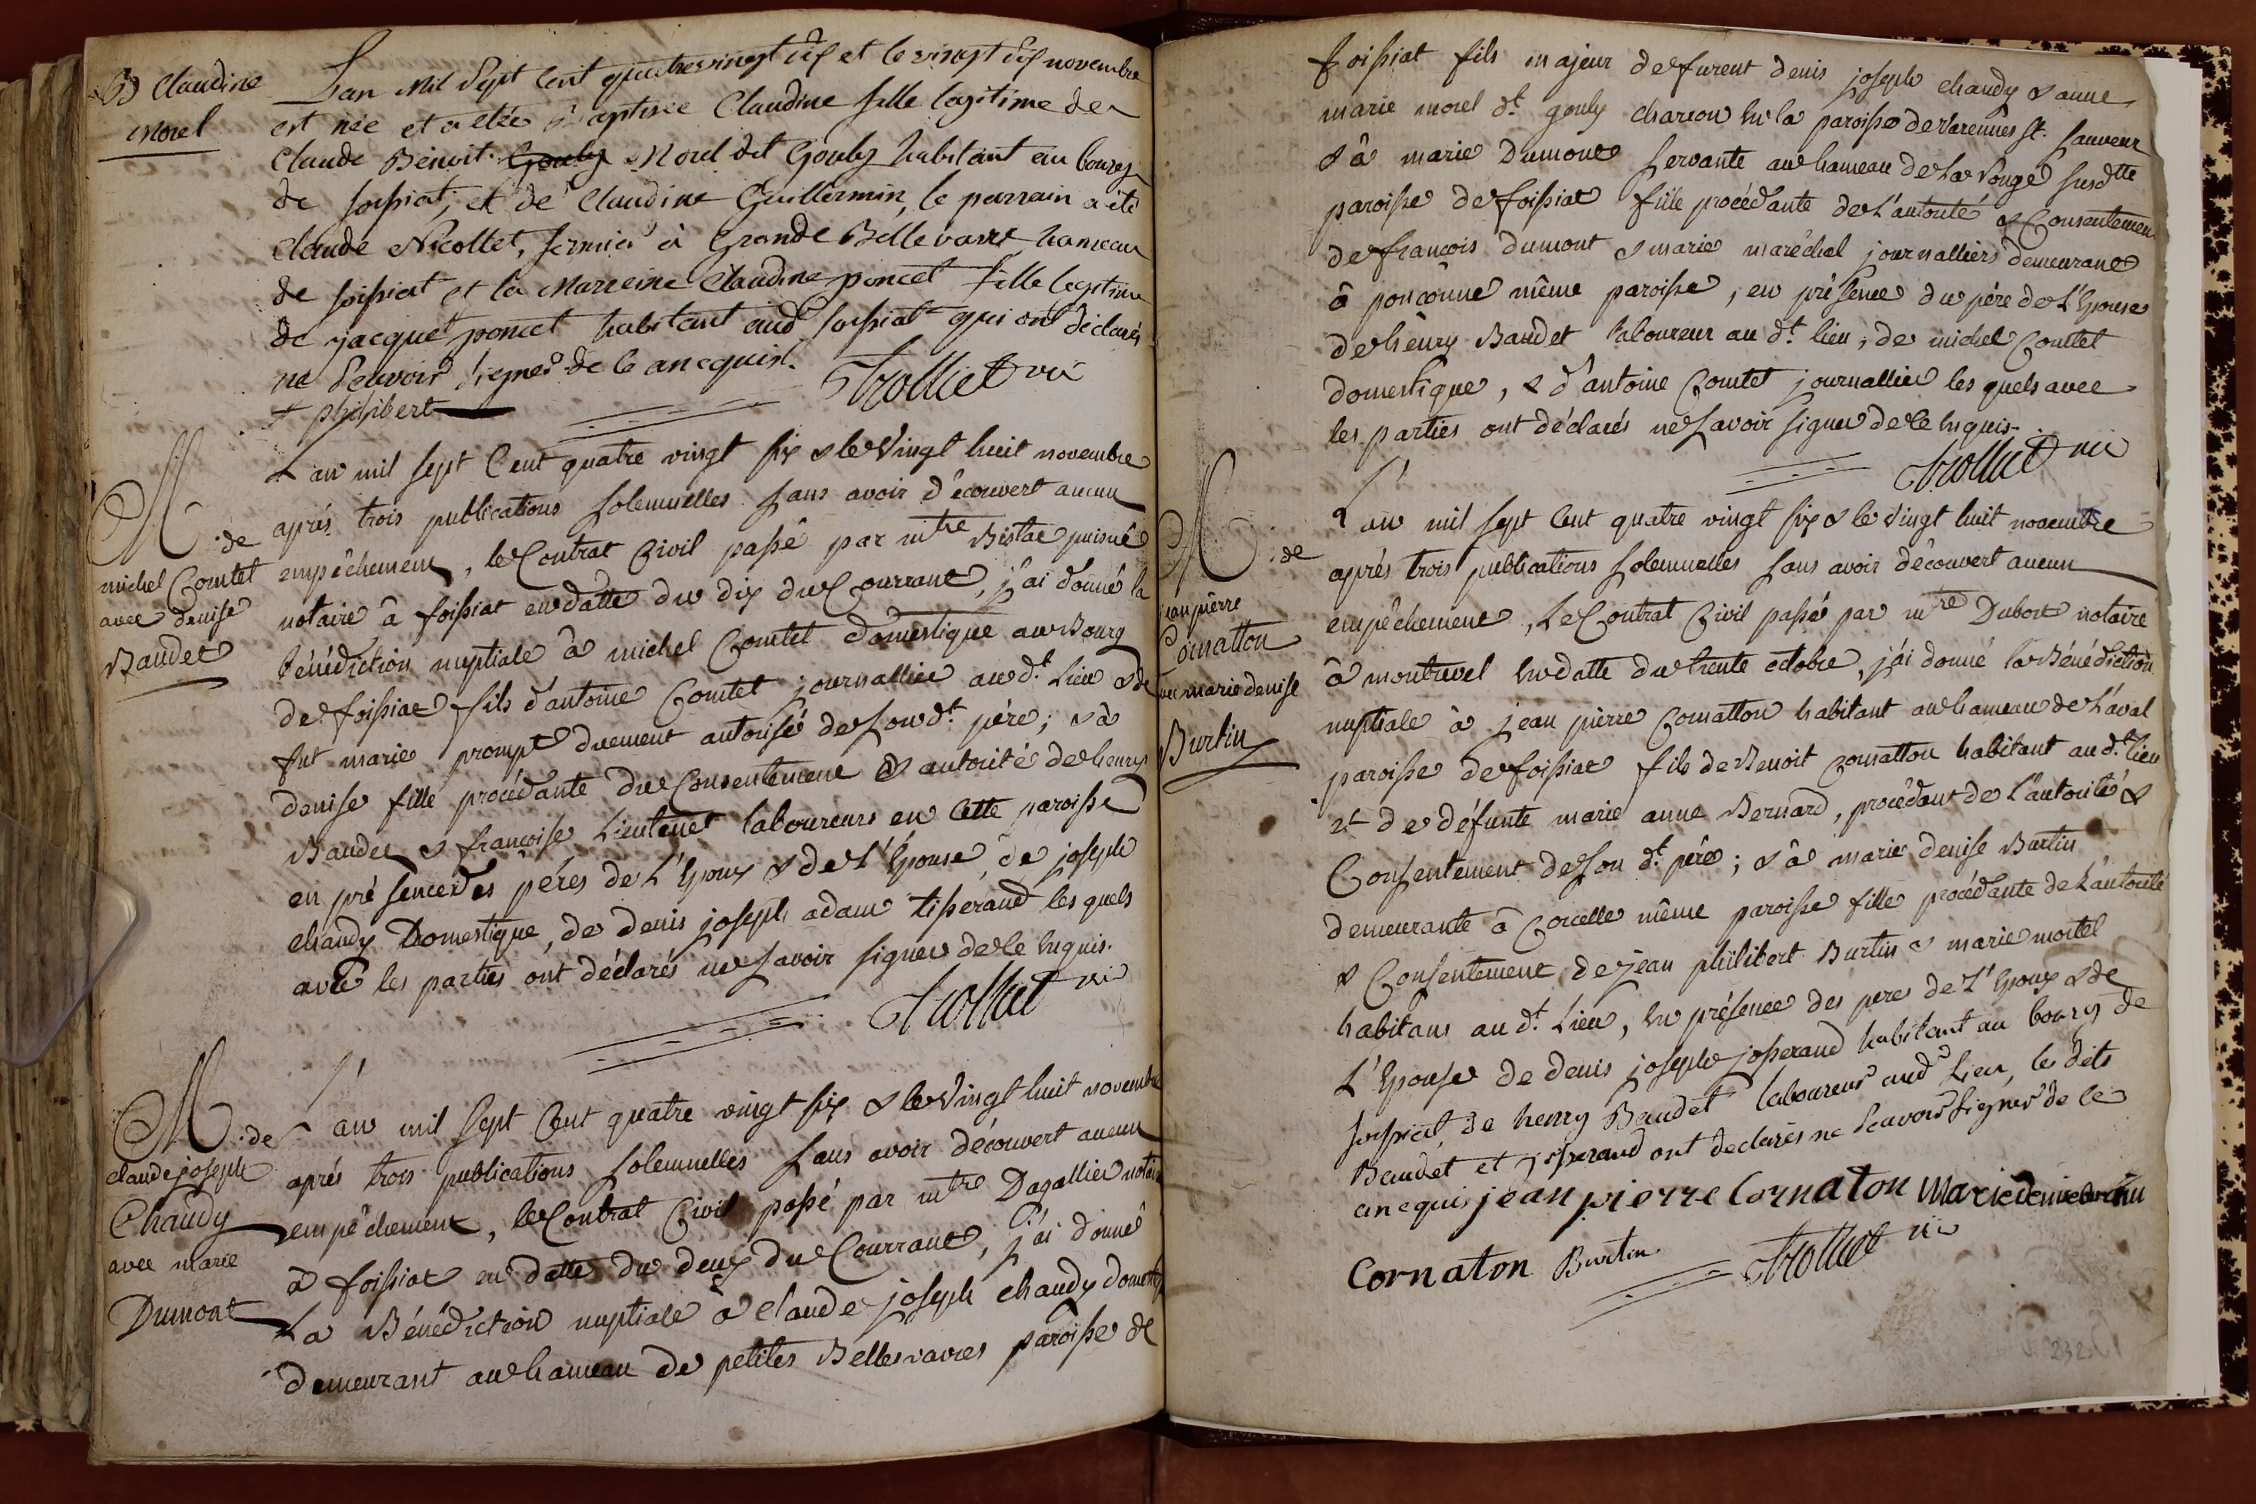 B Claudine
Morel
L'an mil Sept Cent quatrevingt six et le vingt six novembre
est née et a été Baptisée Claudine fille legitime de
Claude Benoit Gouly Morel dit Gouly habitant au bourg
de foissiat, et de Claudine Guillermin, le parrain a été
Claude Nicollet, fermier à Grande Bellevavre hameau
de foissiat et la Marreine Claudine poncet fille legitime
de jacques poncet habitant aud foissiat qui ont déclarés
ne Scavoir Signer de ce ancquis.
+ philibert
Trolliet vic
M. de
michel Comtet
avec denise
Baudet
L'an mil sept Cent quatre vingt six & le Vingt huit novembre
aprés trois publications solemnelles sans avoir découvert aucun
empêchement, le Contrat Civil passé par mtre Bistac puisné
notaire à foissiat en datte du dix du Courrant, j'ai donné la
bénédiction nuptiale à michel Comtet domestique au Bourg
de foissiat fils d'antoine Comtet journallier au dt. Lieu & de
fut marie prompt duement autorisé de son dt. père; & à
denise fille procédante du Consentement & autorité de henry
Baudet & françoise Lieutenet laboureurs en Cette paroisse
en présence des péres de L'Epoux & de L'Epouse, de joseph
chaudy Domestique, de denis joseph adam tisserand les quels
avec les parties ont déclarés ne savoir signer de ce Enquis.
Trolliet vic
M. de
claude joseph
Chaudy
avec marie
Dumont
L'an mil sept Cent quatre vingt six & le Vingt huit novembre
aprés trois publications solemnelles sans avoir découvert aucun
empêchement, le Contrat Civil passé par mtre Dagallier notaire
à foissiat en datte du deux du Courrant, j'ai donné
La Bénédiction nuptiale à claude joseph chaudy domestiq
demeurant au hameau de petites Bellesvavres paroisse de
foissiat fils majeur de furent denis joseph chaudy & anne
marie morel dt. gouly charron en la paroisse de Varennes St. Sauveur
& à marie Dumont servante au hameau de La Vouge susdtte
paroisse de foissiat fille procédante de L'autorité & Consentemen
de françois dumont & marie maréchal journalliers demeurant
à ponconne même paroisse, en présence du père de L'Epouse
de henry Baudet laboureur au dt. lieu, de michel Comtet
domestique, & d'antoine Comtet journallier les quels avec
les parties ont déclarés ne savoir signer de ce Enquis.
Trolliet vic
M. de
jean pierre
Cornatton
avec marie denise
Burtin
L'an mil sept Cent quatre vingt six & le Vingt huit novembre
aprés trois publications solemnelles sans avoir découvert aucun
empêchement, Le Contrat Civil passé par mtre Dubost notaire
à montrevel En datte du trente octobre, j'ai donné la Bénédiction
nuptiale à jean pierre Cornatton habitant au hameau de Laval
paroisse de foissiat fils de Benoit Cornatton habitant au dt. lieu
et de défunte marie anne Bernard, procédant de L'autorité &
Consentement de son dt. père; & à marie denise Burtin
demeurante à Corcelle même paroisse fille procédante de L'autorité
& Consentement de jean philibert Burtin & marie mortel
habitans au dt. Lieu, En présence des peres de L'Epoux & de
L'Epouse de denis joseph josserand habitant au bourg de
foissiat, de henry Baudet laboureur aud Lieu, les dits
Baudet et josserand ont declarés ne Scavoir Signer de ce
ancquis jean pierre Cornaton Marie denise Burtin
Cornaton Burtin Trolliet vic
232